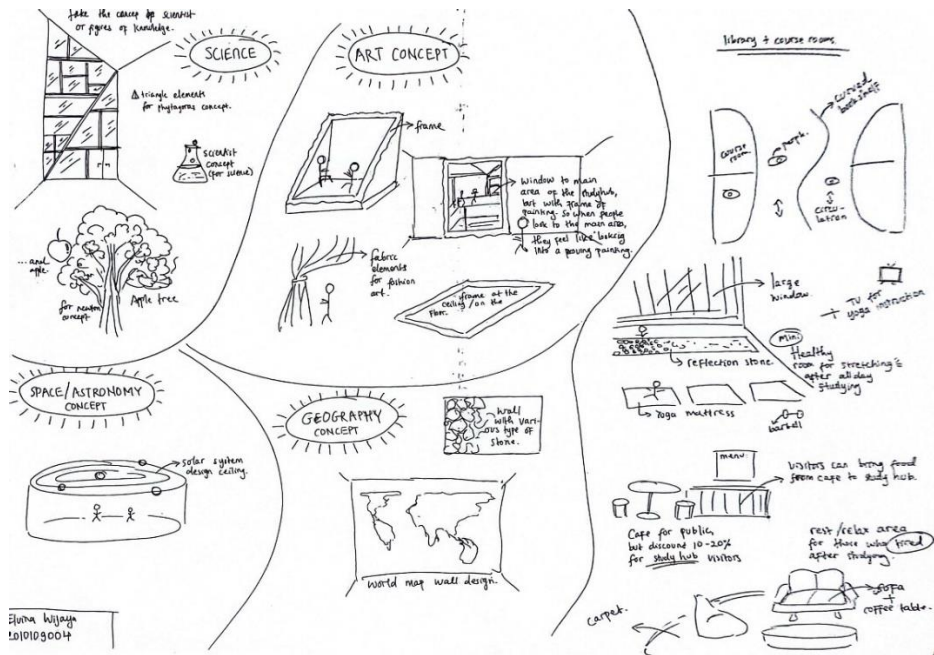 take the concep for scientist
or figures of knowledge.
SCIENCE
triangle elements
for phytagoras concept.
SCIENTIST
CONCEPT
(for science)
... and
apple.
for newton
concept
Apple tree
ART CONCEPT
frame
window to main
area of the studyhub,
but with frame of
painting. So when people
look to the main area,
they feel like looking
into a moving painting.
fabric
elements
for fashion
art.
frame at the
ceiling / on the
floor.
SPACE/ASTRONOMY
CONCEPT
solar system
design ceiling.
GEOGRAPHY
CONCEPT
wall
with vari-
ous type of
stone.
world map wall design.
library + course rooms
course
room
curved
bookshelf
circu-
lation
large
window.
TV for
yoga instruction
reflection stone.
mini
Healthy
room for stretching
after all day
studying
Yoga mattress
barbell
menu
visitors can bring food
from cafe to study hub.
Cafe for public,
but discount 10-20%
for study hub visitors
rest/relax area
for those who tired
after studying.
sofa
+
coffee table.
carpet.
Elvina Wijaya
2010109004